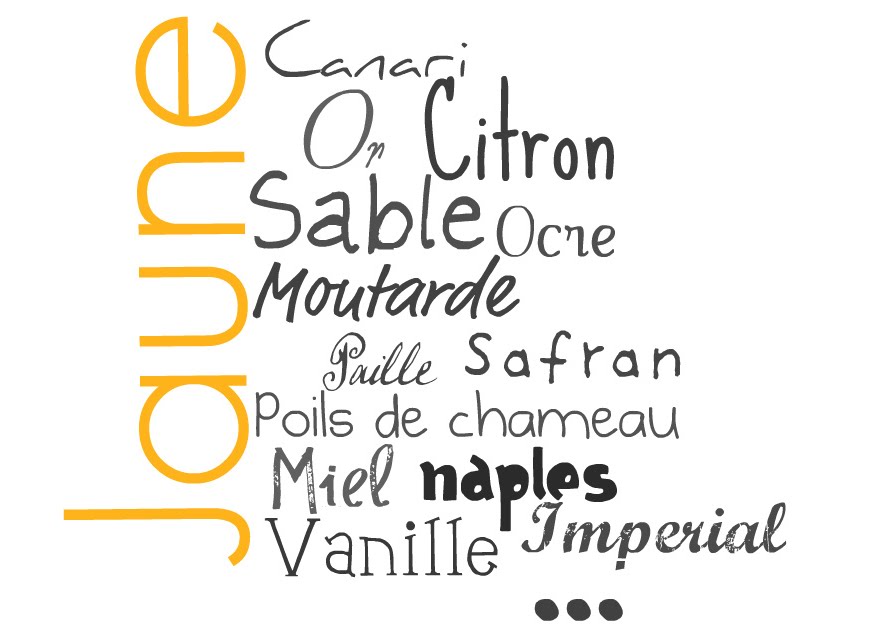 Jaune
Canari
On Citron
Sable Ocre
Moutarde
Paille Safran
Poils de chameau
Miel naples
Vanille Imperial
...